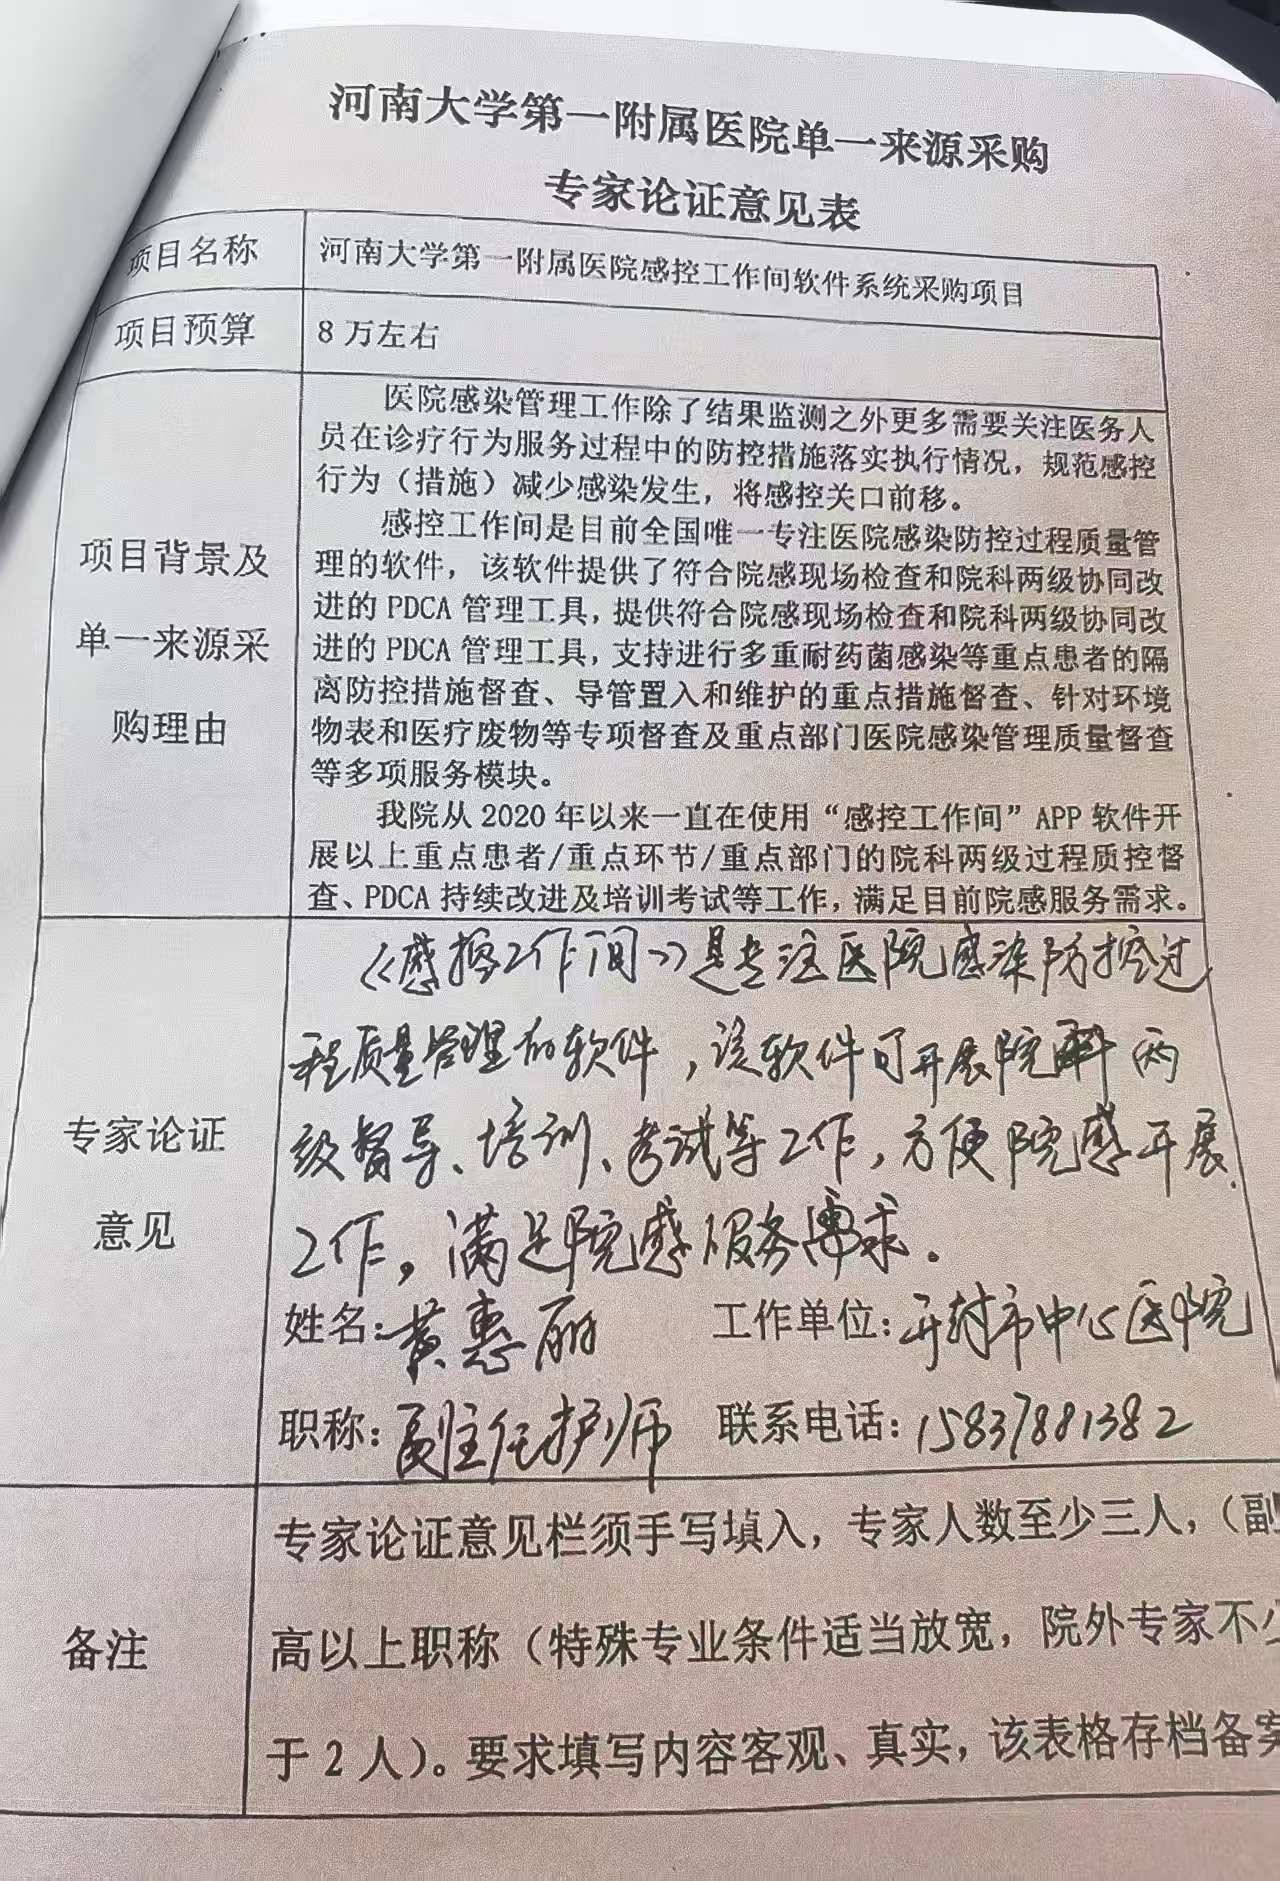 河南大学第一附属医院单一来源采购
专家论证意见表
项目名称
河南大学第一附属医院感控工作间软件系统采购项目
项目预算
8 万左右
项目背景及
单一来源采
购理由
医院感染管理工作除了结果监测之外更多需要关注医务人
员在诊疗行为服务过程中的防控措施落实执行情况，规范感控
行为（措施）减少感染发生，将感控关口前移。
感控工作间是目前全国唯一专注医院感染防控过程质量管
理的软件，该软件提供了符合院感现场检查和院科两级协同改
进的 PDCA 管理工具，提供符合院感现场检查和院科两级协同改
进的 PDCA 管理工具，支持进行多重耐药菌感染等重点患者的隔
离防控措施督查、导管置入和维护的重点措施督查、针对环境
物表和医疗废物等专项督查及重点部门医院感染管理质量督查
等多项服务模块。
我院从 2020 年以来一直在使用“感控工作间”APP 软件开
展以上重点患者/重点环节/重点部门的院科两级过程质控督
查、PDCA 持续改进及培训考试等工作，满足目前院感服务需求。
专家论证
意见
《感控工作间》是专注医院感染防控过
程质量管理的软件，该软件可开展院科两
级督导、培训、考试等工作，方便院感开展
工作，满足院感服务需求。
姓名：黄惠丽 工作单位：开封市中心医院
职称：副主任护师 联系电话：15837881382
备注
专家论证意见栏须手写填入，专家人数至少三人，（副
高以上职称（特殊专业条件适当放宽，院外专家不少
于 2 人）。要求填写内容客观、真实，该表格存档备案